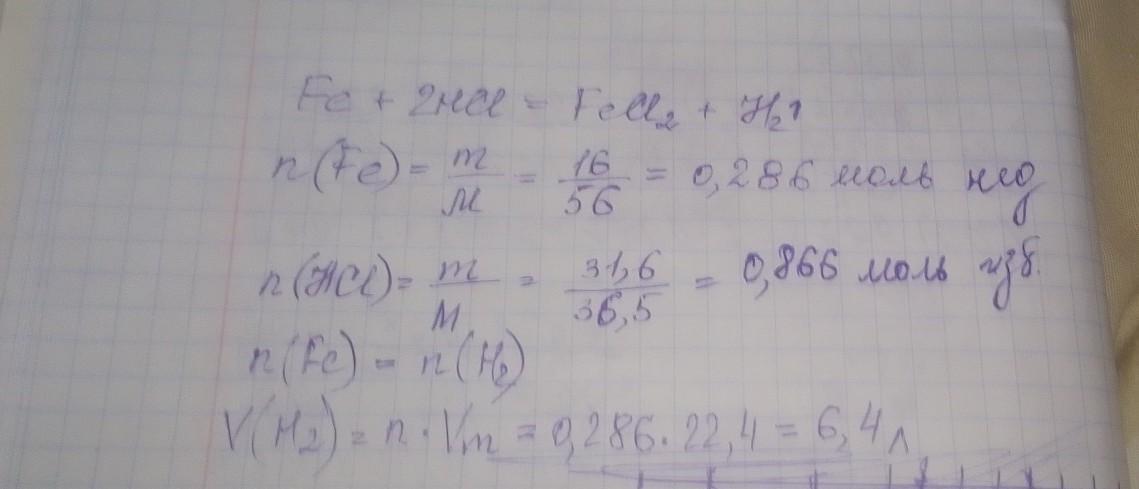 Fe + 2HCl = FeCl₂ + H₂↑
n(Fe) = m/M = 16/56 = 0,286 моль нед
n(HCl) = m/M = 31,6/36,5 = 0,866 моль изб.
n(Fe) = n(H₂)
V(H₂) = n · Vm = 0,286 · 22,4 = 6,4 л